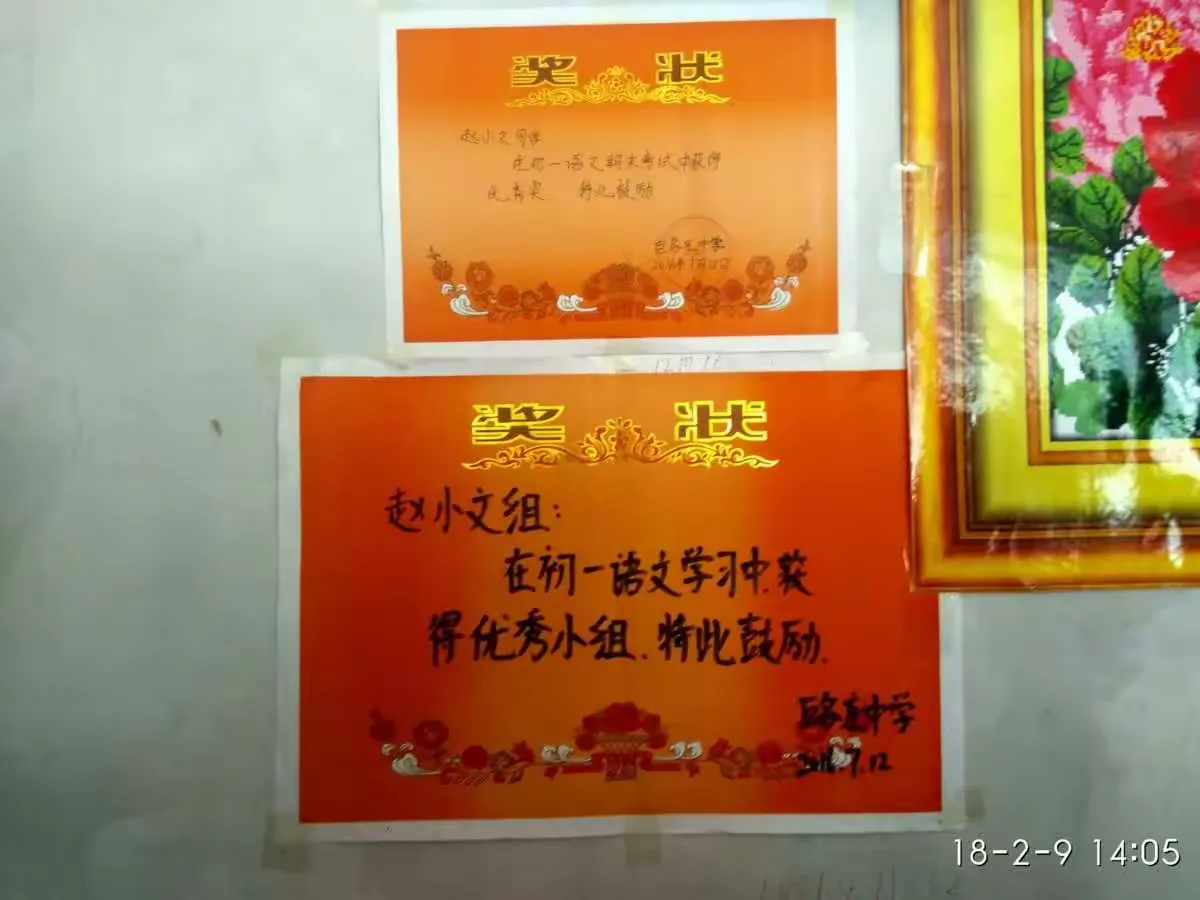 奖 状
赵小文同学
在初一语文期末考试中获得
优秀奖 特此鼓励
中学
奖 状
赵小文组：
在初一语文学习中.获
得优秀小组.特此鼓励.
中学
7.12
18-2-9 14:05